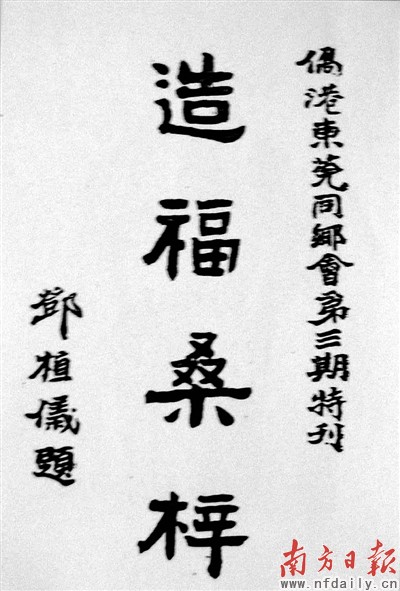 僑港東莞同鄉會第三期特刊
造福桑梓
鄧植儀題
南方日報
www.nfdaily.cn